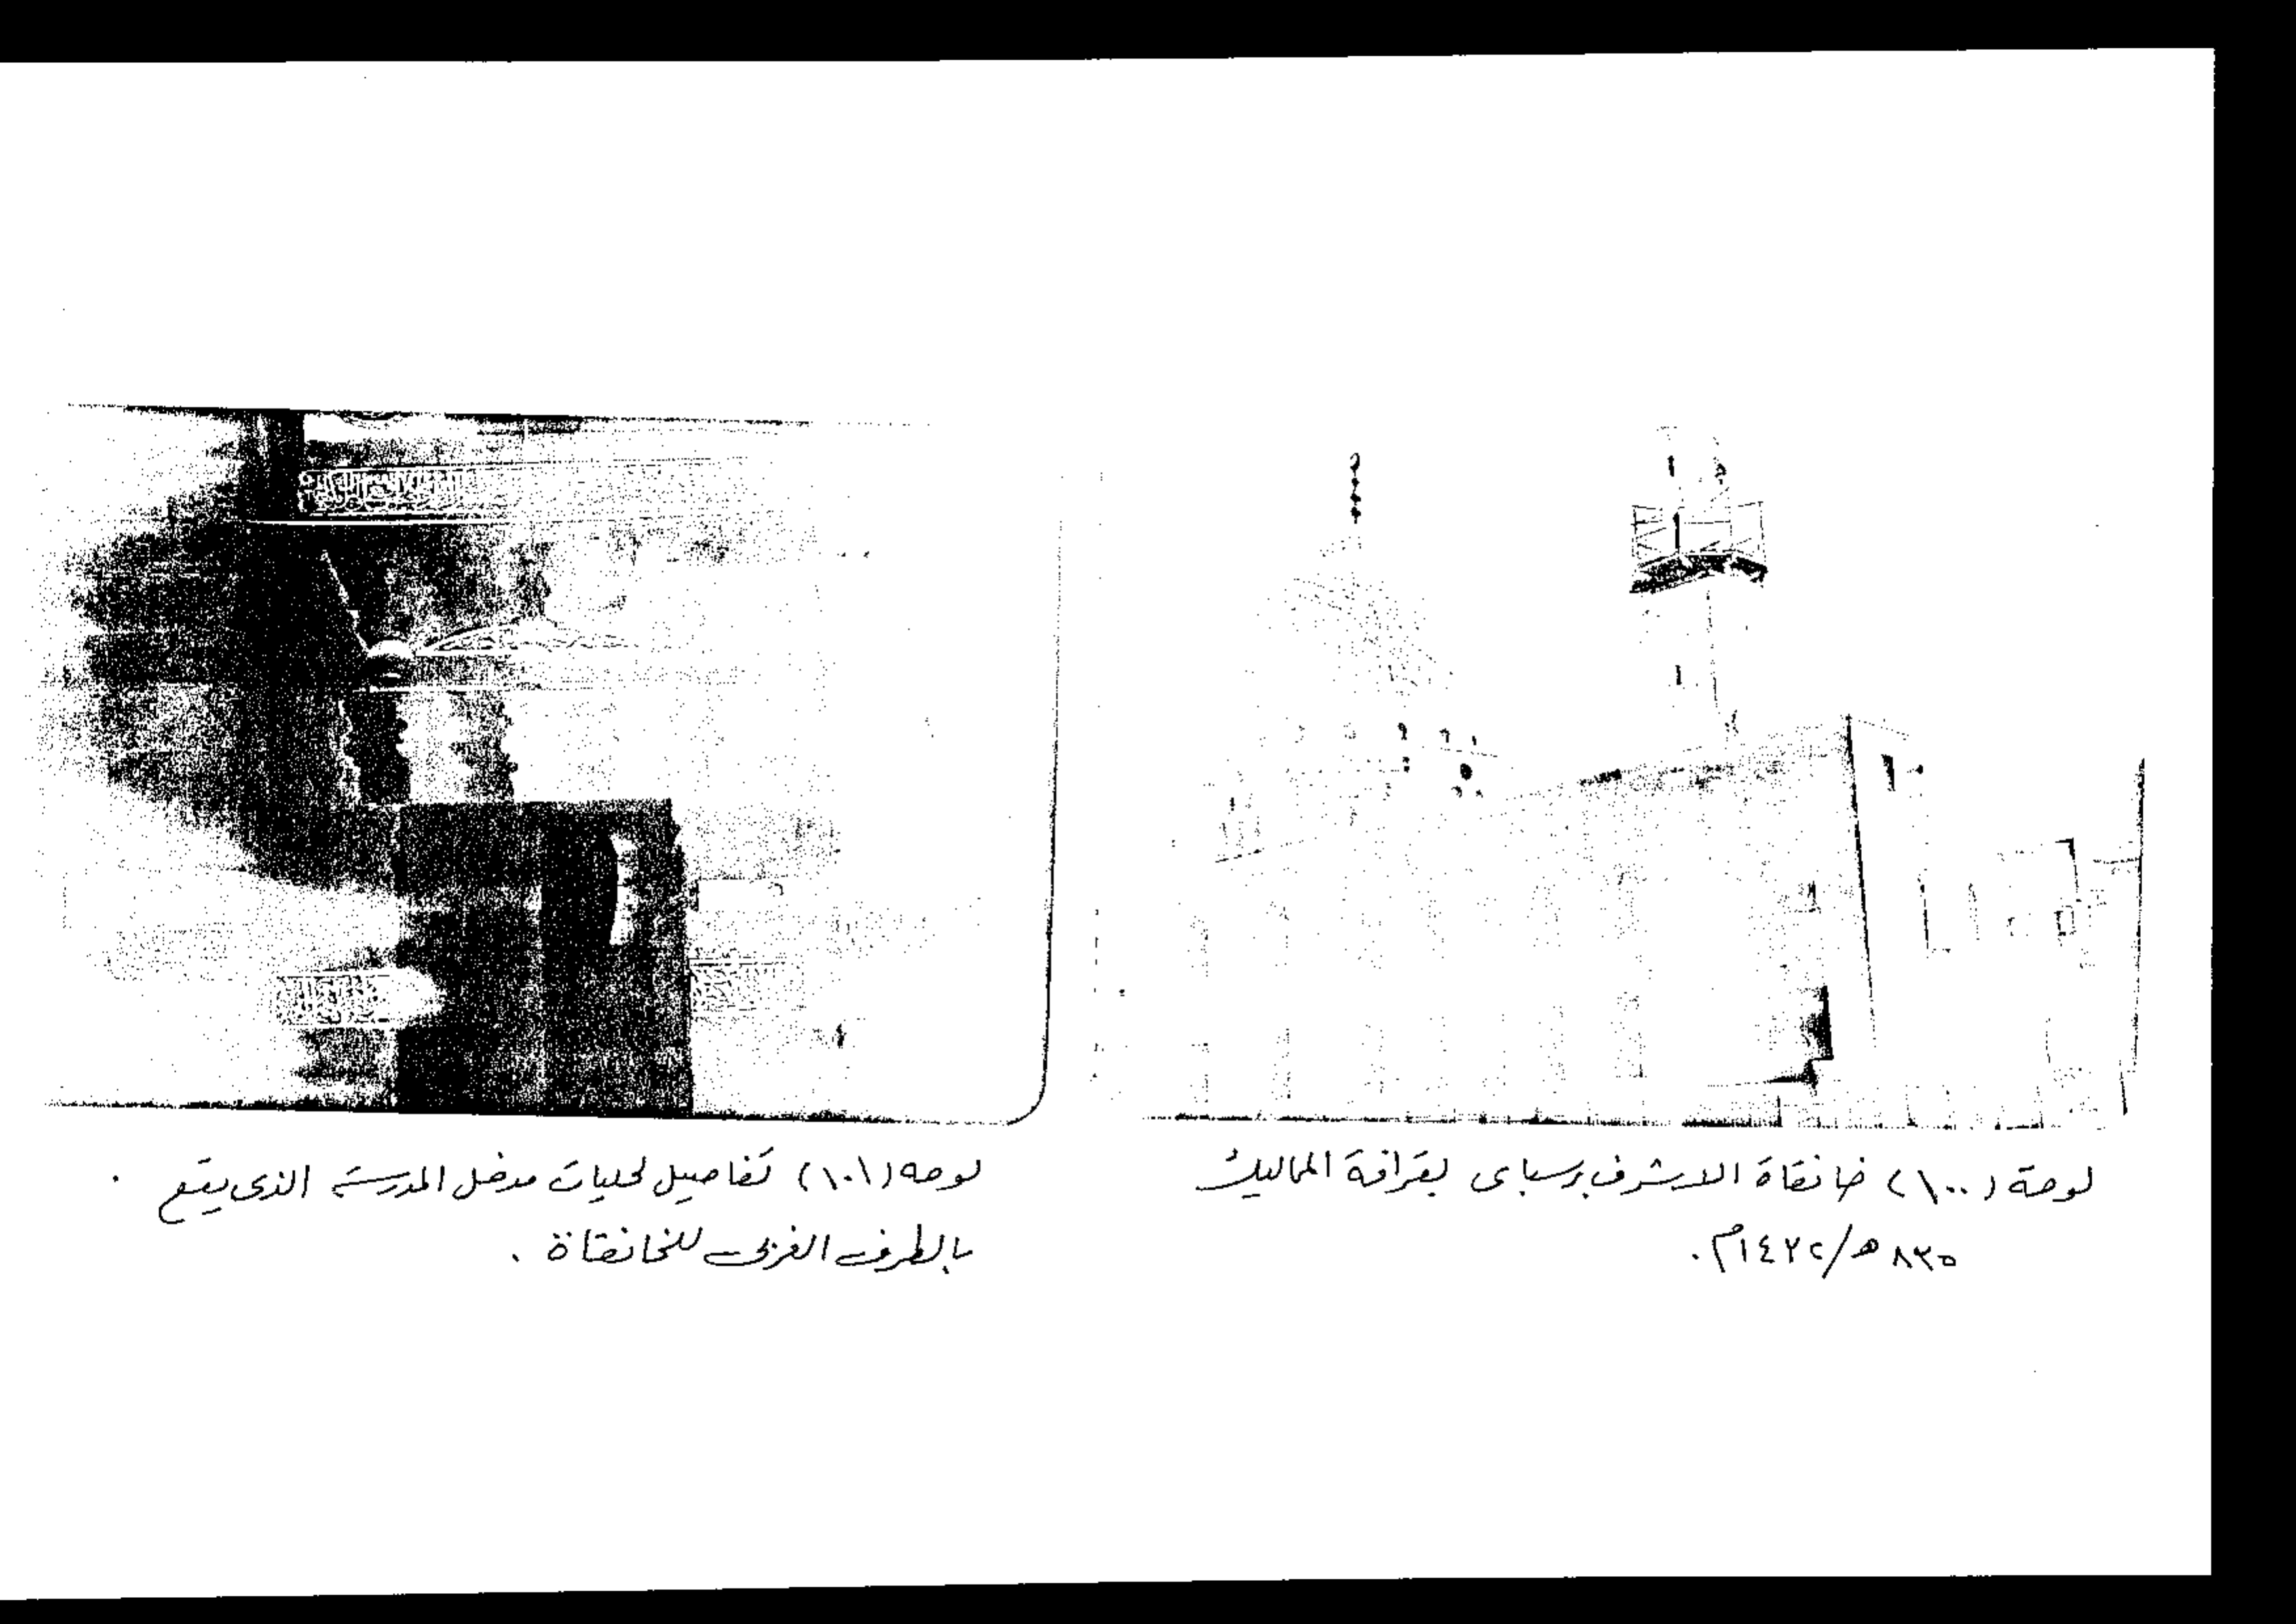 لوحة (١٠٠) خانقاة الاشرف برسباى بقرافة المماليك
٨٣٥ هـ/١٤٣٢م.
لوحه (١٠١) تفاصيل لحليات مدخل المدرسة الذى يقع
بالطرف الغربى للخانقاة .